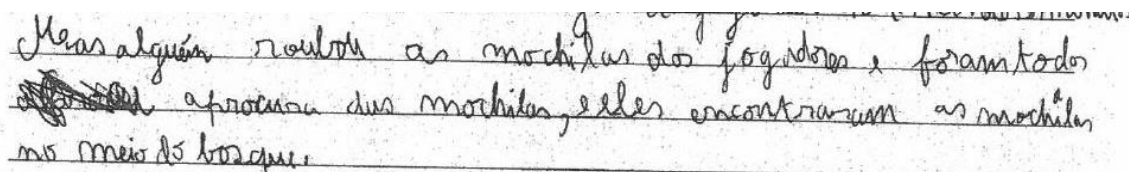 Meas alguén roubou as mochilas dos jogadores e foram todos
aprocura das mochilas, e eles encontraram as mochilas
no meio do bosque.